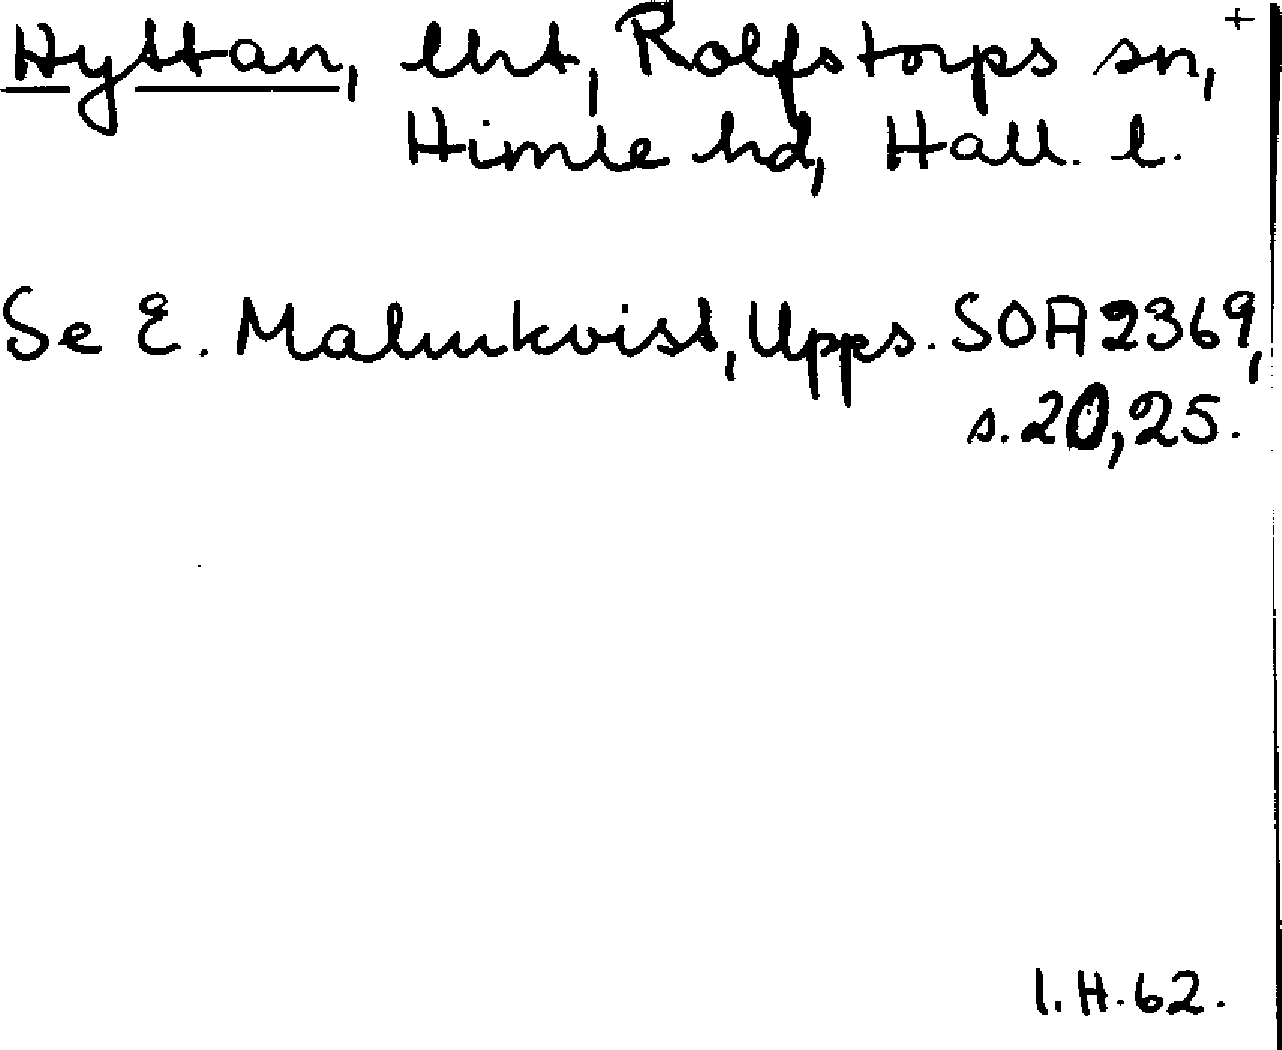 Hyttan, lht, Rolfstorps sn, +
Himle hd, Hall. l.
Se E. Malmkvist, Upps. SOA 2369,
s. 20, 25.
I. H. 62.